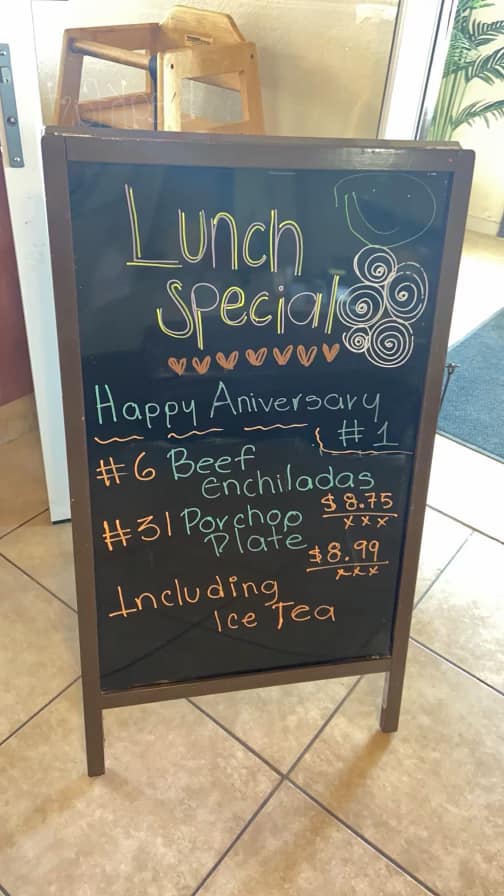 Lunch
Special
Happy Aniversary
#1
#6 Beef
Enchiladas
$8.75
xxx
#31 Porchop
Plate
$8.99
xxx
Including
Ice Tea